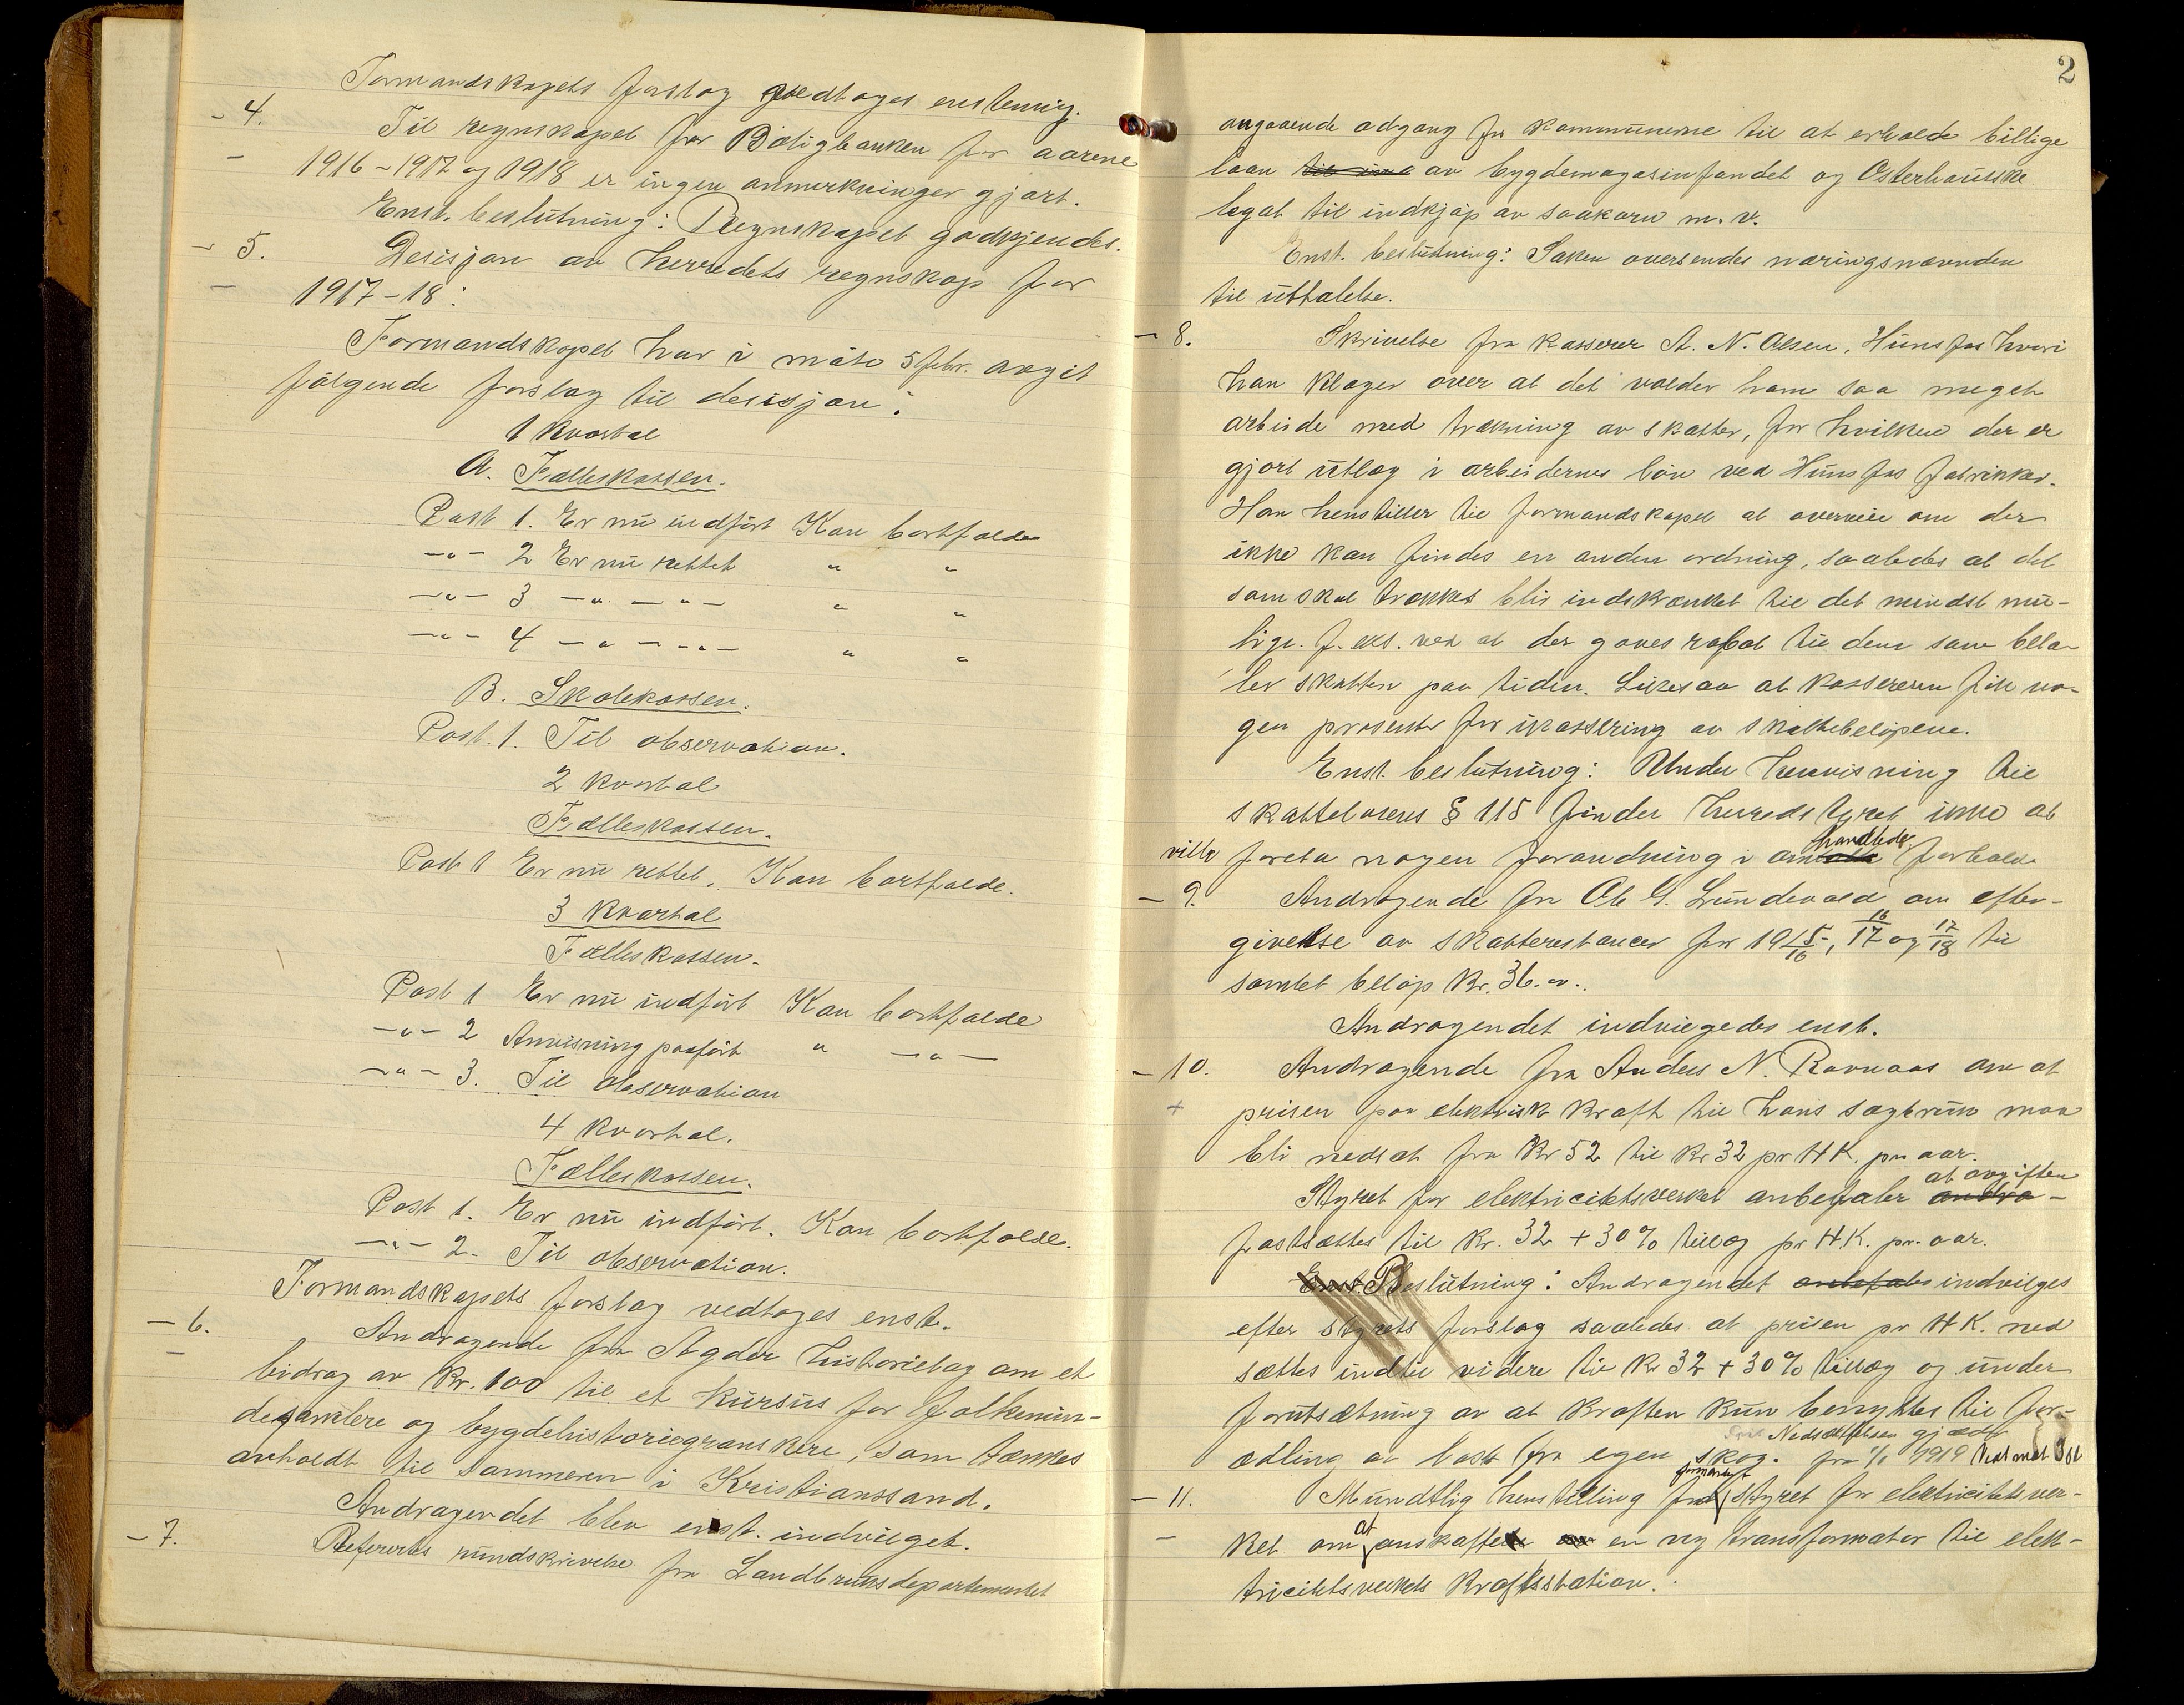 Formandskapets forslag vedtoges enstemig.
- 4. Til regnskapet for Boligbanken for aarene
- 1916-1917 og 1918 er ingen anmerkninger gjort.
Enst. beslutning: Regnskapet godkjendes.
- 5. Desisjon av herredets regnskap for
- 1917-18:
Formandskapet har i møte 5 febr. avgit
følgende forslag til desisjon:
1 kvartal
A. Fælleskassen.
Post 1. Er nu indført Kan bortfalde
-"- 2 Er nu rettet " "
-"- 3 -"- -"- " "
-"- 4 -"- -"- " "
B. Skolekassen.
Post. 1. Til observation.
2 kvartal
Fælleskassen.
Post 1 Er nu rettet. Kan bortfalde.
3 kvartal
Fælleskassen.
Post 1 Er nu indført Kan bortfalde
-"- 2 Anvisning paaført " -"-
-"- 3. Til observation
4 kvartal.
Fælleskassen.
Post 1. Er nu indført. Kan bortfalde.
-"- 2. Til observation.
Formandskapets forslag vedtoges enst.
- 6. Andragende fra Agder historielag om et
- bidrag av kr. 100 til et kursus for folkemin-
desamlere og bygdehistoriegranskere, som tænkes
avholdt til sommeren i Kristianssand.
Andragendet blev enst. indvilget.
- 7. Refereres rundskrivelse fra Landbruksdepartementet
2
angaaende adgang for kommunerne til at erholde billige
laan av bygdemagasinfondet og Osterhausske
legat til indkjøp av saakorn m.v.
Enst. beslutning: Saken oversendes næringsnævnden
til uttalelse.
- 8. Skrivelse fra kasserer A. N. Olsen, Hunsfos hvori
han klager over at det volder ham saa meget
arbeide med trækning av skatter, for hvilken der er
gjort utlæg i arbeidernes løn ved Hunsfos fabrikker.
Han henstiller til formandskapet at overveie om der
ikke kan findes en anden ordning, saaledes at det
som skal trækkes blir indskrænket til det mindst mu-
lige. f. eks. ved at der gaves rabat til dem som beta-
ler skatten paa tiden. Likesaa at kassereren fik no-
gen prosenter for inkassering av skattebeløpene.
Enst. beslutning: Under henvisning til
skattelovens § 115 finder herredstyret ikke at
ville foreta nogen forandring i omhandlede forhold
- 9. Andragende fra Ole G. Lundevold om efter-
givelse av skatterestancer for 1915/16, 16/17 og 17/18 til
samlet beløp kr. 36.-.
Andragendet indvilgedes enst.
- 10. Andragende fra Anders N. Ravnaas om at
+ prisen paa elektrisk kraft til hans sagbruk maa
bli nedsat fra kr 52 til kr 32 pr HK. pr. aar.
Styret for elektricitetsverket anbefaler at avgiften
fastsættes til kr. 32 + 30% tillæg pr H.K. pr. aar.
Beslutning: Andragendet indvilges
efter styrets forslag saaledes at prisen pr HK. ned
sættes indtil videre til kr 32 + 30% tillæg og under
forutsætning av at kraften kun benyttes til for-
Nedsættelsen gjælder
ædling av last fra egen skog. fra 1/1 1919
- 11. Mundtlig henstilling fra styret for elektricitetsver-
- ket om at anskaffe en ny transformator til elek-
tricitetsverkets kraftstation.